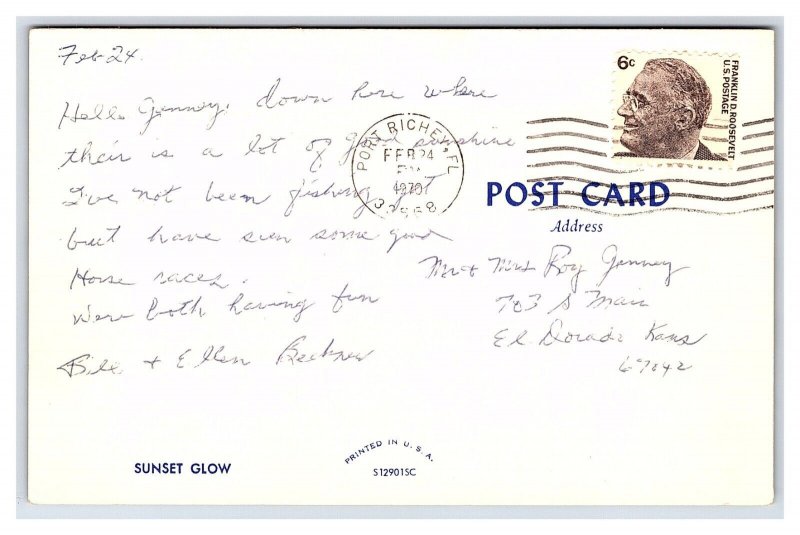 Feb 24.
Hello Genney. down here where
their is a lot of good sunshine
I've not been fishing yet
but have seen some good
Horse races.
Were both having fun
Bill + Ellen
6c
FRANKLIN D. ROOSEVELT
U.S. POSTAGE
PORT RICHEY, FL
FEB 24
PM
1970
POST CARD
Address
Mr + Mrs Roy Genney
703 S Main
El Dorado Kans
67042
SUNSET GLOW
PRINTED IN U.S.A.
S12901SC